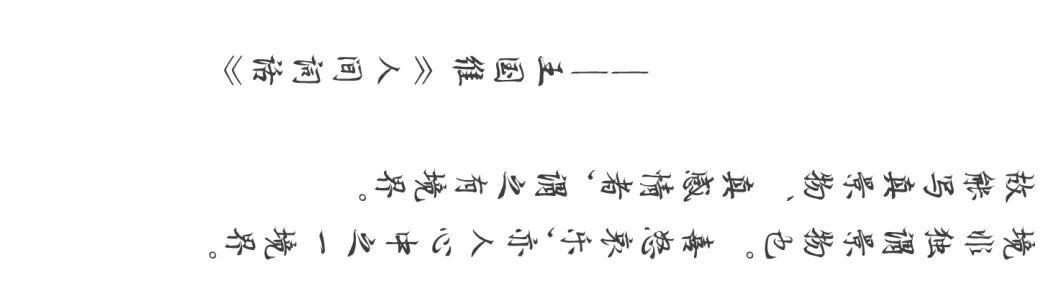 境非独谓景物也。喜怒哀乐,亦人心中之一境界。
故能写真景物、真感情者,谓之有境界。
——王国维《人间词话》